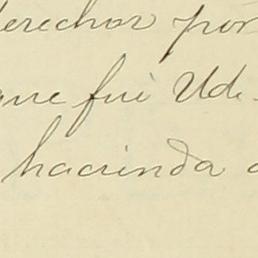 derechos por
que fui Ud.
hacienda